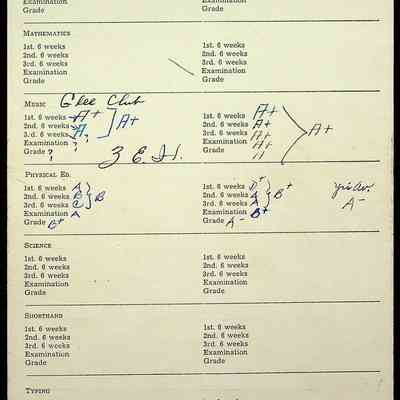 Examination Examination
Grade Grade
MATHEMATICS
1st. 6 weeks 1st. 6 weeks
2nd. 6 weeks 2nd. 6 weeks
3rd. 6 weeks 3rd. 6 weeks
Examination Examination
Grade Grade
MUSIC Glee Club
1st. 6 weeks A+ 1st. 6 weeks A+
2nd. 6 weeks A+ 2nd. 6 weeks A+ A+
3.d. 6 weeks A 3rd. 6 weeks A+
Examination ? Examination A+
Grade ? 3 E. H. Grade "
PHYSICAL ED.
1st. 6 weeks A 1st. 6 weeks D+
2nd. 6 weeks B B 2nd. 6 weeks A B+ yr's Av.
3rd. 6 weeks C 3rd. 6 weeks A A-
Examination A Examination B+
Grade B+ Grade A-
SCIENCE
1st. 6 weeks 1st. 6 weeks
2nd. 6 weeks 2nd. 6 weeks
3rd. 6 weeks 3rd. 6 weeks
Examination Examination
Grade Grade
SHORTHAND
1st. 6 weeks 1st. 6 weeks
2nd. 6 weeks 2nd. 6 weeks
3rd. 6 weeks 3rd. 6 weeks
Examination Examination
Grade Grade
TYPING